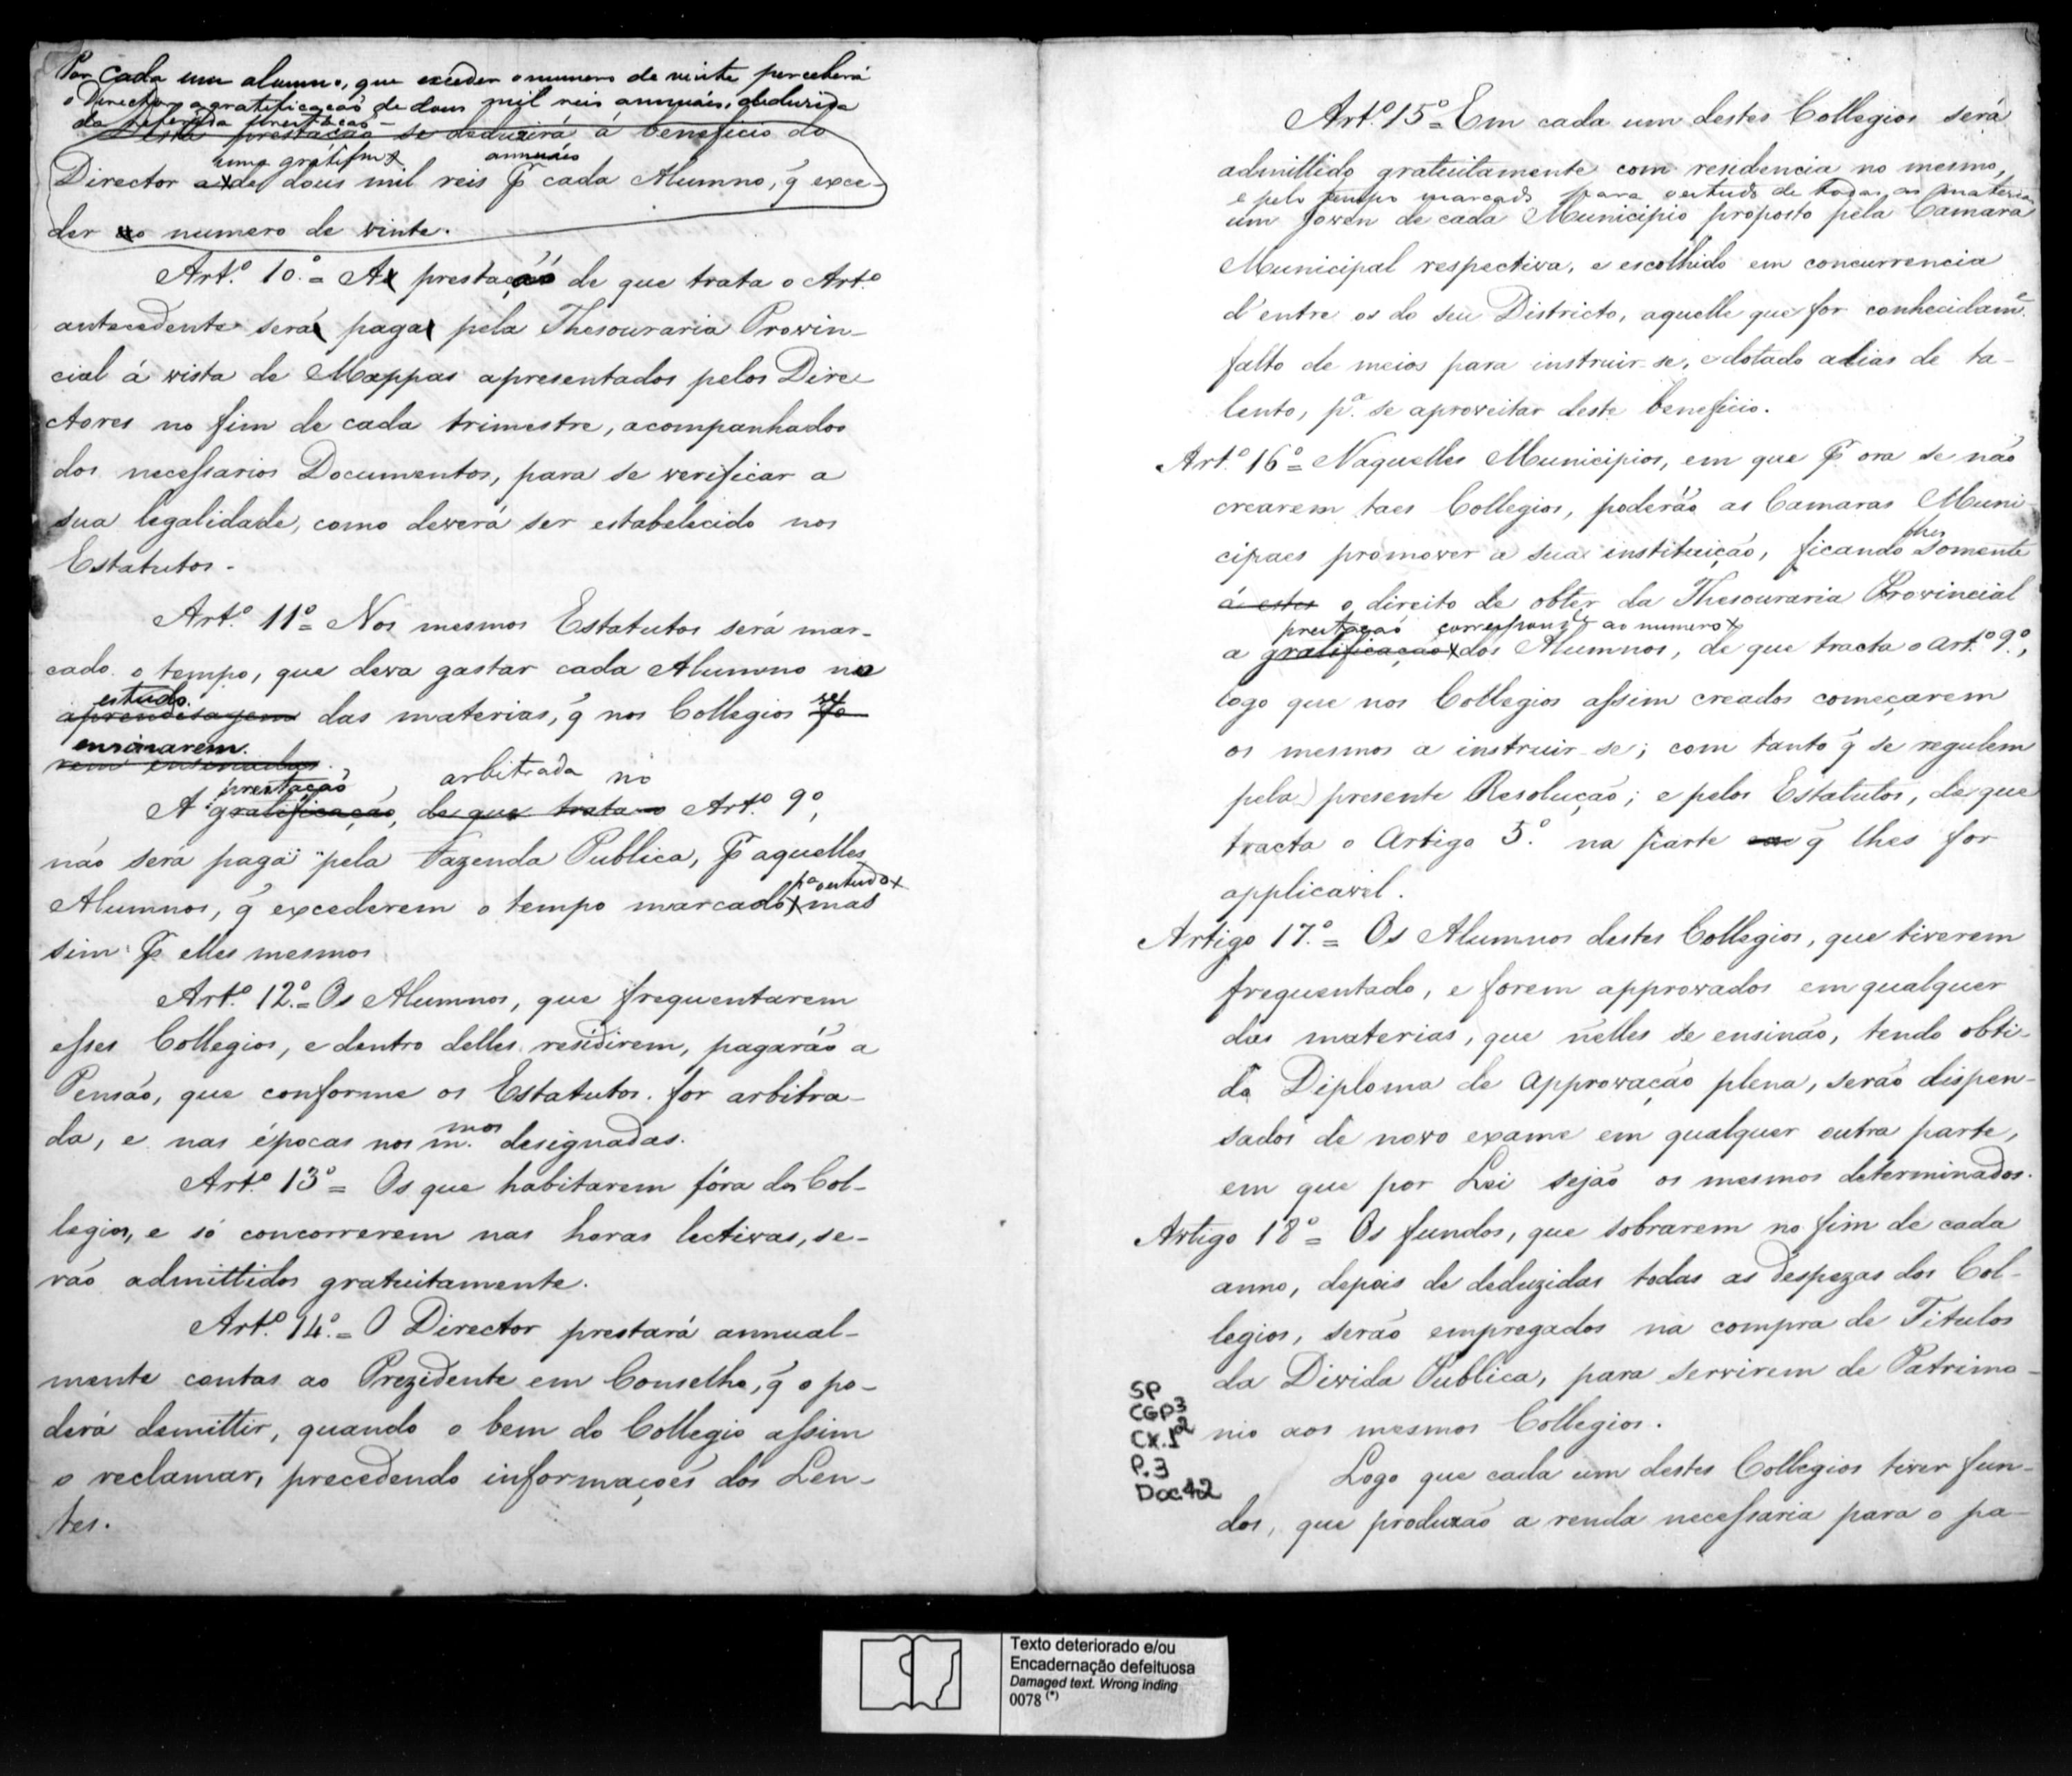 Por cada um alumno, que exceder o numero de vinte perceberá
o Director a gratificação de dous mil reis annuáes, deduzida
da referida prestação -
Desta prestação se deduzirá á beneficio do
uma gratifm annuáes
Director a de dous mil reis p.r cada Alumno, q̃ exce-
der ao numero de vinte.
Art.º 10.º = A prestação de que trata o Art.º
antecedente será paga pela Thesouraria Provin-
cial á vista de Mappas apresentados pelos Dire-
ctores no fim de cada trimestre, acompanhados
dos necessarios Documentos, para se verificar a
sua legalidade, como deverá ser estabelecido nos
Estatutos.
Art.º 11º = Nos mesmos Estatutos será mar-
cado o tempo, que deva gastar cada Alumno no
estudo. se
aprendisagem das materias, q̃ nos Collegios fo-
ensinarem.
rem ensinadas.
prestação arbitrada no
A gratificação, de que trata o Art.º 9º,
não será paga pela Fazenda Publica, p.r aquelles
p.ª o estudo
Alumnos, q̃ excederem o tempo marcado, mas
sim p.r elles mesmos
Art.º 12.º = Os Alumnos, que frequentarem
esses Collegios, e dentro delles residirem, pagarão a
Pensão, que conforme os Estatutos for arbitra-
da, e nas épocas nos m.mos designadas.
Art.º 13º = Os que habitarem fóra dos Col-
legios, e só concorrerem nas horas lectivas, se-
rão admittidos gratuitamente.
Art.º 14.º = O Director prestará annual-
mente contas ao Prezidente em Conselho, q̃ o po-
derá demittir, quando o bem do Collegio assim
o reclamar, precedendo informações dos Len-
tes.
Art.º 15º = Em cada um destes Collegios será
admittido gratuitamente com residencia no mesmo,
e pelo tempo marcado para o estudo de todas as materias
um joven de cada Municipio proposto pela Camara
Municipal respectiva, e escolhido em concurrencia
d'entre os do seu Districto, aquelle que for conhecidam.e
falto de meios para instruir-se, e dotado alias de ta-
lento, p.ª se aproveitar deste beneficio.
Art.º 16º = Naquelles Municipios, em que p.r ora se não
crearem taes Collegios, poderão as Camaras Muni-
lhes
cipaes promover a sua instituição, ficando somente
á estes o direito de obter da Thesouraria Provincial
prestação correspond.e ao numero
a gratificação dos Alumnos, de que tracta o art.º 9.º,
logo que nos Collegios assim creados começarem
os mesmos a instruir-se; com tanto q̃ se regulem
pela presente Resolução; e pelos Estatutos, de que
tracta o Artigo 5.º na parte q̃ lhes for
applicavel.
Artigo 17.º = Os Alumnos destes Collegios, que tiverem
frequentado, e forem approvados em qualquer
das materias, que nelles se ensinão, tendo obti-
do Diploma de approvação plena, serão dispen-
sados de novo exame em qualquer outra parte,
em que por Lei sejão os mesmos determinados.
Artigo 18º = Os fundos, que sobrarem no fim de cada
anno, depois de deduzidas todas as despezas dos Col-
legios, serão empregados na compra de Titulos
da Divida Publica, para servirem de Patrimo-
nio aos mesmos Collegios.
Logo que cada um destes Collegios tiver fun-
dos, que produzão a renda necessaria para o pa-
SP
CGP3
CX.1
P.3
Doc42
Texto deteriorado e/ou
Encadernação defeituosa
Damaged text. Wrong inding
0078 (*)